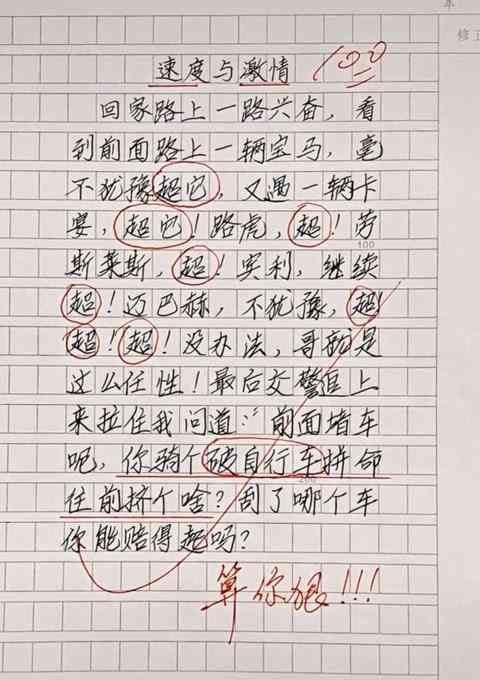 年
修正
速度与激情 100
回家路上一路兴奋，看
到前面路上一辆宝马，毫
不犹豫超它，又遇一辆卡
宴，超它！路虎，超！劳
100
斯莱斯，超！宾利，继续
超！迈巴赫，不犹豫，超！
超！超！没办法，哥就是
这么任性！最后交警追上
来拉住我问道："前面堵车
呢，你骑个破自行车拼命
200
往前挤个啥？刮了哪个车
你能赔得起吗？
算你狠!!!